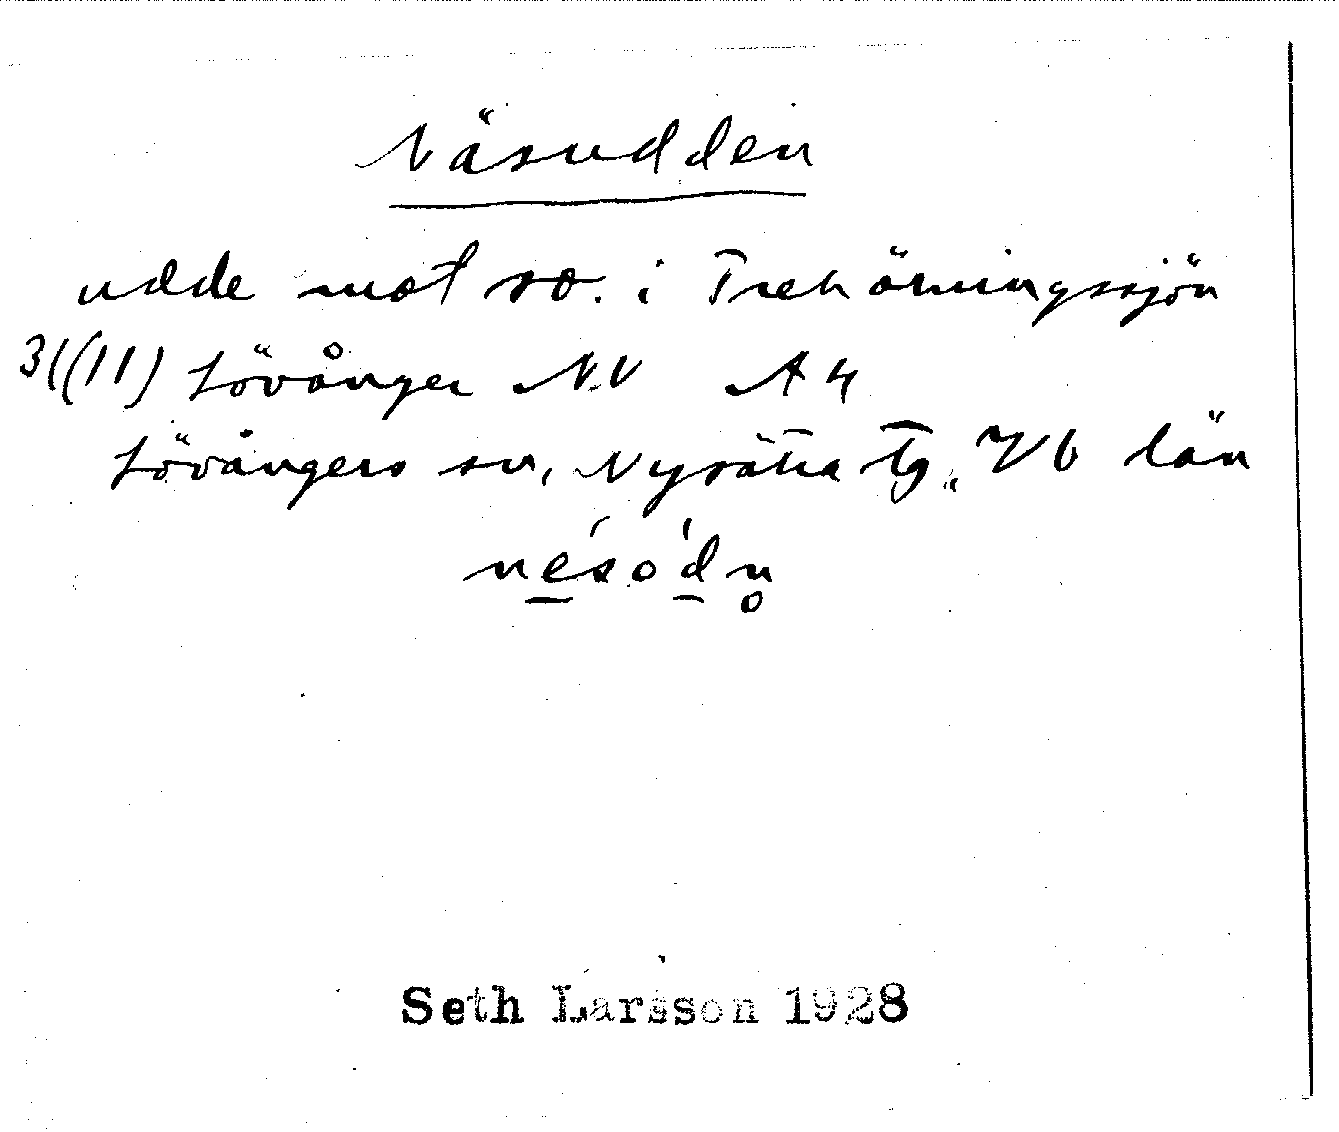 Näsudden
udde mot so. i Trehörningssjön
31(11) Lövånger NV A4
Lövångers sn, Nysätra tg, Vb län
nésód̥n
Seth Larsson 1928